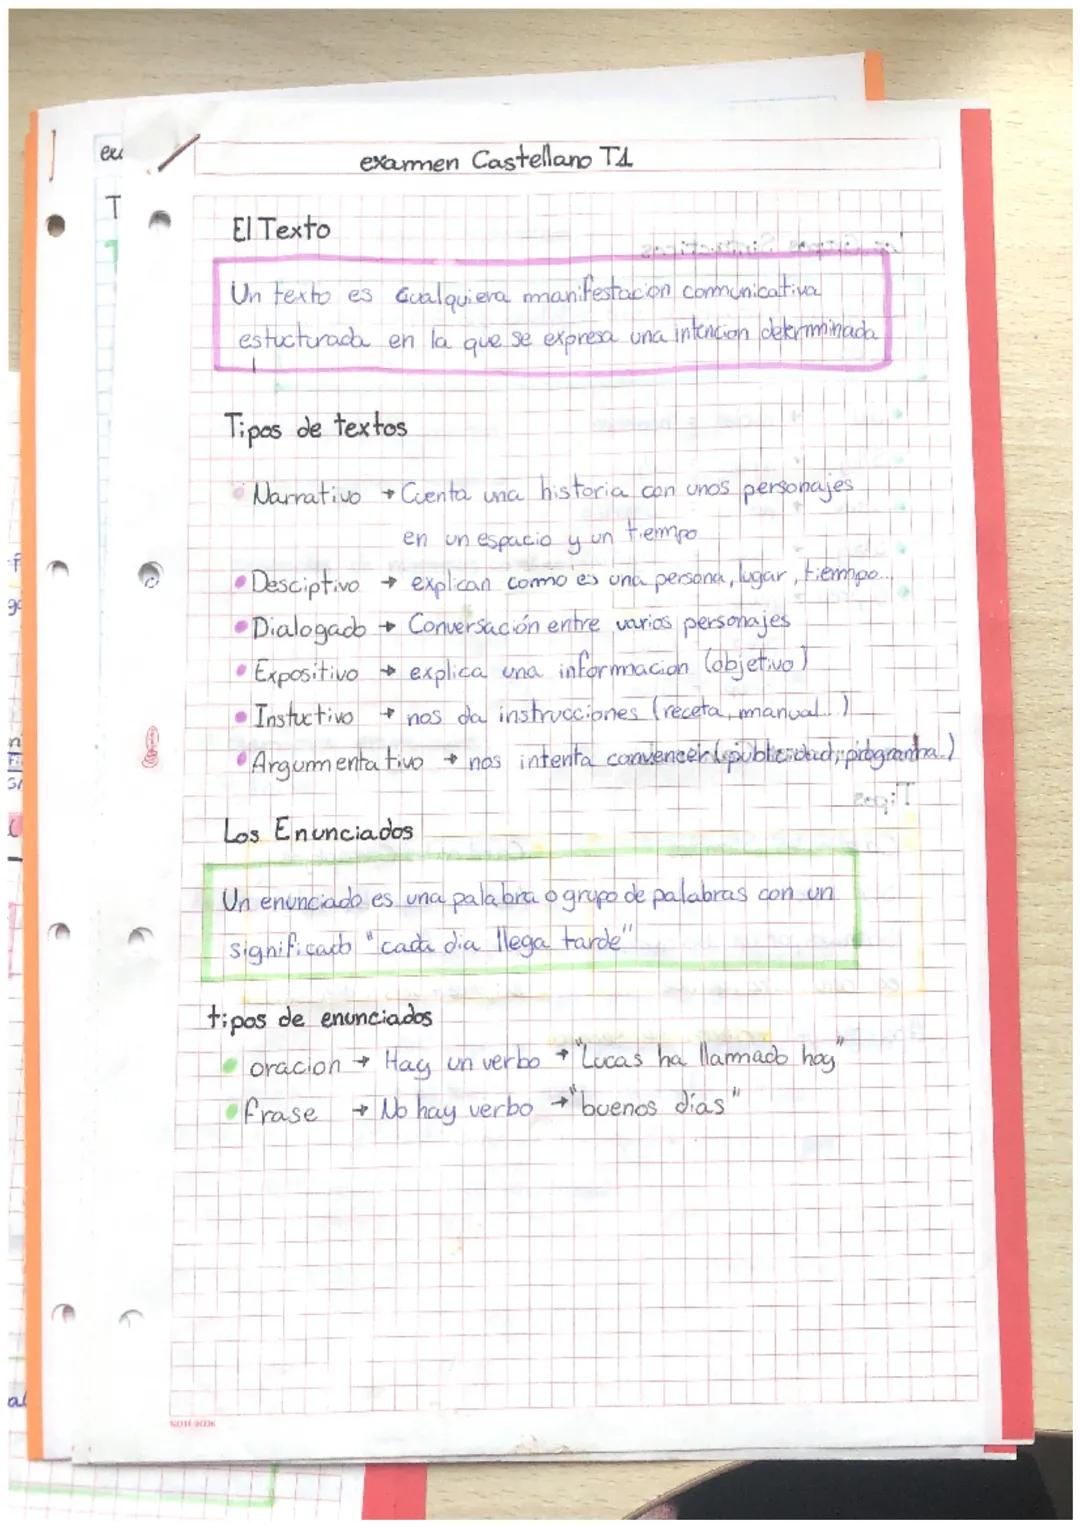 examen Castellano T1
El Texto
Un texto es cualquiera manifestacion comunicativa
estucturada en la que se expresa una intencion determinada
Tipos de textos
Narrativo → Cuenta una historia con unos personajes
en un espacio y un tiempo
Desciptivo → explican como es una persona, lugar, tiempo...
Dialogado → Conversación entre varios personajes
Expositivo → explica una informacion (objetivo)
Instuctivo → nos da instrucciones (receta, manual...)
Argumentativo → nos intenta convencer (publicidad, programa..)
Los Enunciados
Un enunciado es una palabra o grupo de palabras con un
significado "cada dia llega tarde"
tipos de enunciados
oracion → Hay un verbo → "Lucas ha llamado hoy"
frase → No hay verbo → "buenos días"